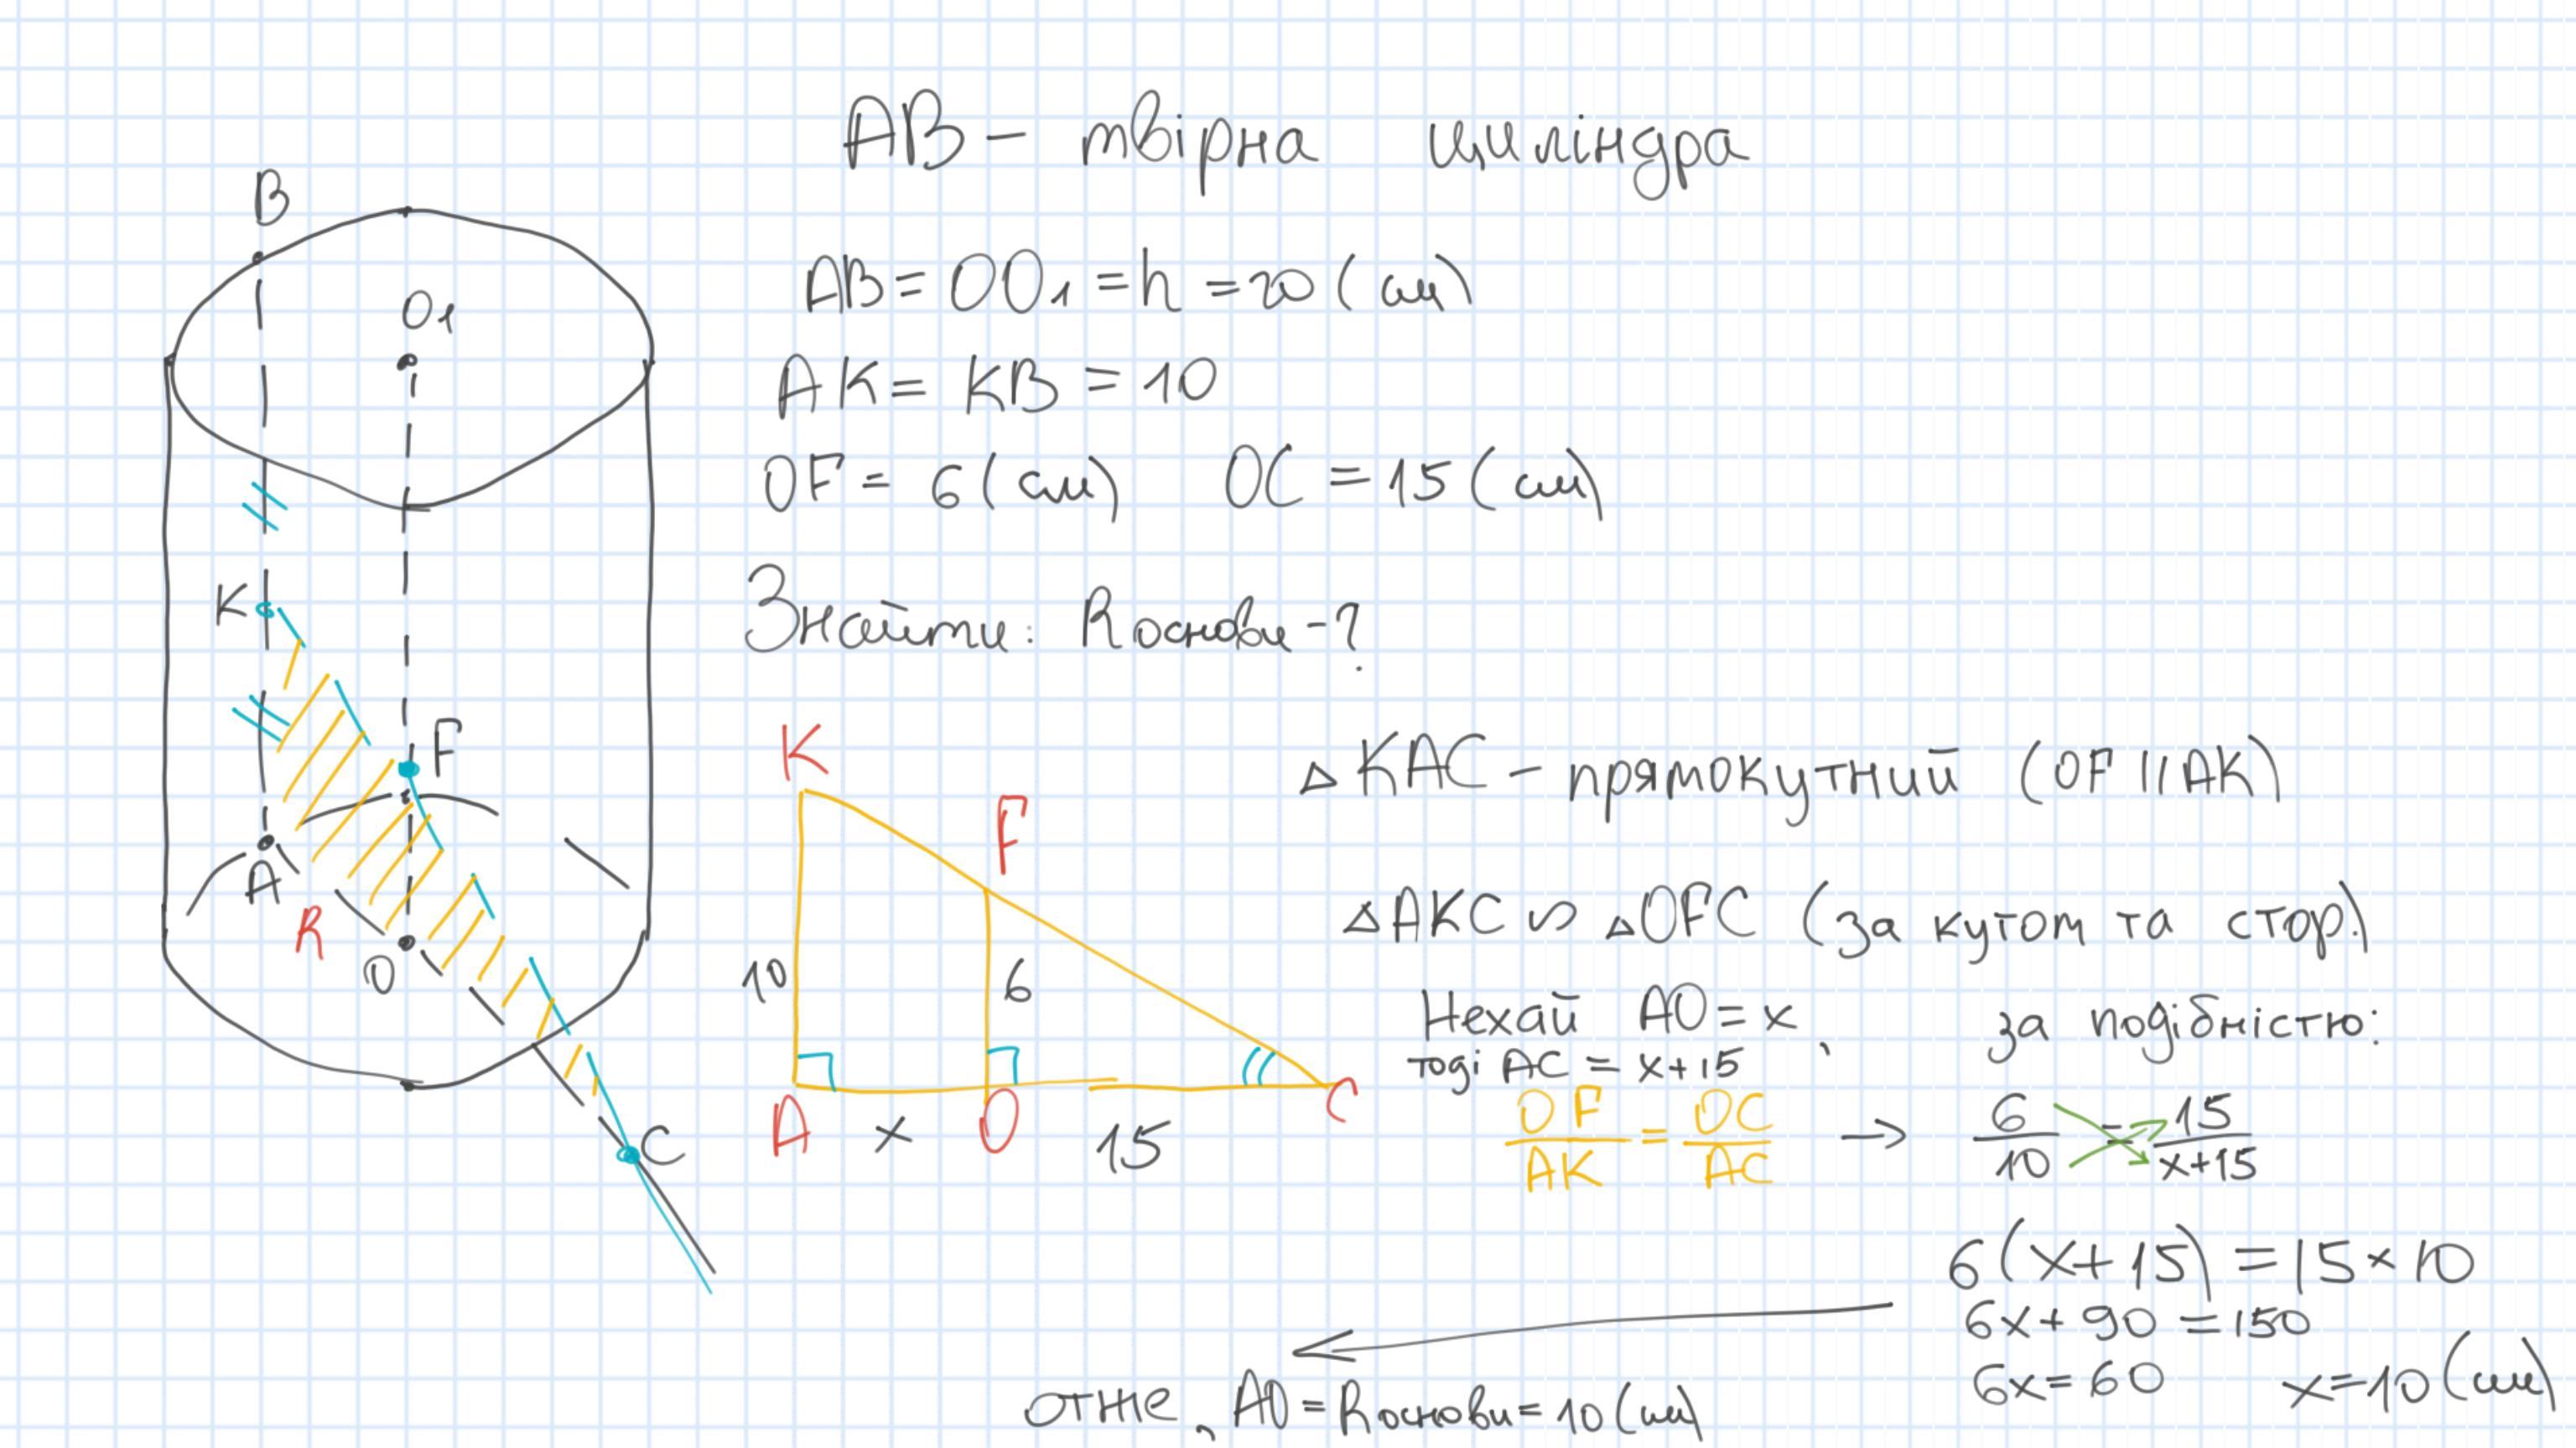 AB – твірна циліндра
B
AB = OO₁ = h = 20 (см)
O₁
AK = KB = 10
OF = 6 (см) OC = 15 (см)
K
Знайти: R основи - ?
F
A
R
O
C
K
F
10
6
A x O 15 C
△KAC – прямокутний (OF || AK)
△AKC ∾ △OFC (за кутом та стор.)
Нехай AO = x,
тоді AC = x+15
за подібністю:
OF/AK = OC/AC → 6/10 = 15/x+15
6(x+15) = 15 × 10
6x + 90 = 150
6x = 60 x = 10 (см)
отже, AO = R основи = 10 (см)